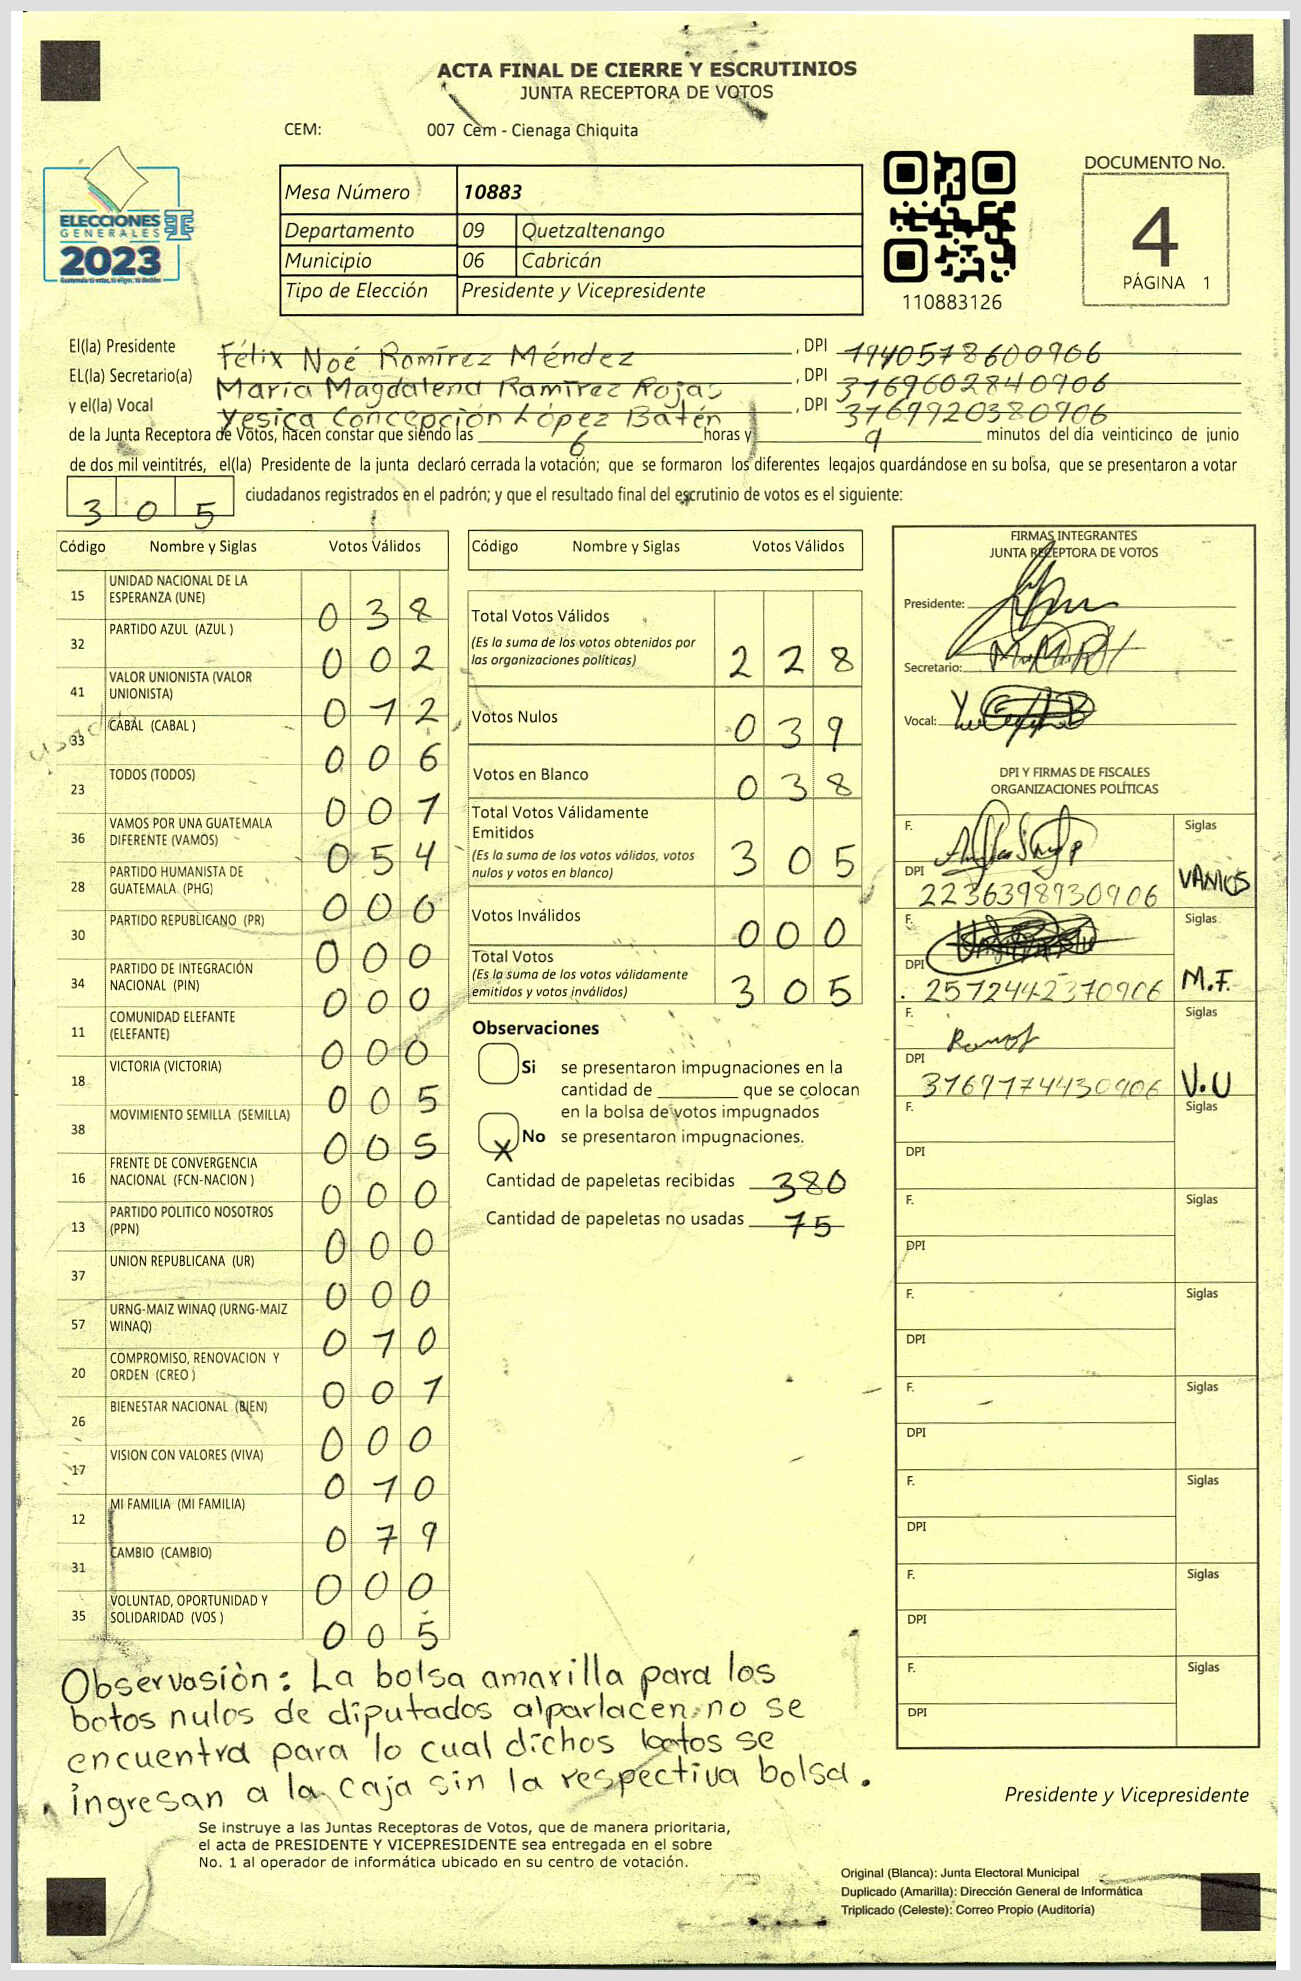 ACTA FINAL DE CIERRE Y ESCRUTINIOS
JUNTA RECEPTORA DE VOTOS
CEM: 007 Cem - Cienaga Chiquita
ELECCIONES
GENERALES
2023
Mesa Número 10883
Departamento 09 Quetzaltenango
Municipio 06 Cabricán
Tipo de Elección Presidente y Vicepresidente
110883126
DOCUMENTO No.
4
PÁGINA 1
El(la) Presidente Félix Noé Ramírez Méndez , DPI 1940578600906
EL(la) Secretario(a) María Magdalena Ramírez Rojas , DPI 3169602840906
y el(la) Vocal Yesica Concepción López Batén , DPI 3769920380906
de la Junta Receptora de Votos, hacen constar que siendo las 6 horas y 9 minutos del día veinticinco de junio
de dos mil veintitrés, el(la) Presidente de la junta declaró cerrada la votación; que se formaron los diferentes legajos guardándose en su bolsa, que se presentaron a votar
305 ciudadanos registrados en el padrón; y que el resultado final del escrutinio de votos es el siguiente:
Código Nombre y Siglas Votos Válidos
15 UNIDAD NACIONAL DE LA ESPERANZA (UNE) 038
32 PARTIDO AZUL (AZUL ) 002
41 VALOR UNIONISTA (VALOR UNIONISTA) 012
33 CABAL (CABAL ) 006
23 TODOS (TODOS) 001
36 VAMOS POR UNA GUATEMALA DIFERENTE (VAMOS) 054
28 PARTIDO HUMANISTA DE GUATEMALA (PHG) 000
30 PARTIDO REPUBLICANO (PR) 000
34 PARTIDO DE INTEGRACIÓN NACIONAL (PIN) 000
11 COMUNIDAD ELEFANTE (ELEFANTE) 000
18 VICTORIA (VICTORIA) 005
38 MOVIMIENTO SEMILLA (SEMILLA) 005
16 FRENTE DE CONVERGENCIA NACIONAL (FCN-NACION ) 000
13 PARTIDO POLITICO NOSOTROS (PPN) 000
37 UNION REPUBLICANA (UR) 000
57 URNG-MAIZ WINAQ (URNG-MAIZ WINAQ) 010
20 COMPROMISO, RENOVACION Y ORDEN (CREO ) 001
26 BIENESTAR NACIONAL (BIEN) 000
17 VISION CON VALORES (VIVA) 010
12 MI FAMILIA (MI FAMILIA) 079
31 CAMBIO (CAMBIO) 000
35 VOLUNTAD, OPORTUNIDAD Y SOLIDARIDAD (VOS ) 005
Código Nombre y Siglas Votos Válidos
Total Votos Válidos 228
(Es la suma de los votos obtenidos por
las organizaciones políticas)
Votos Nulos 039
Votos en Blanco 038
Total Votos Válidamente
Emitidos 305
(Es la suma de los votos válidos, votos
nulos y votos en blanco)
Votos Inválidos 000
Total Votos 305
(Es la suma de los votos válidamente
emitidos y votos inválidos)
Observaciones
Si se presentaron impugnaciones en la
cantidad de ________ que se colocan
en la bolsa de votos impugnados
X No se presentaron impugnaciones.
Cantidad de papeletas recibidas 380
Cantidad de papeletas no usadas 75
FIRMAS INTEGRANTES
JUNTA RECEPTORA DE VOTOS
Presidente:
Secretario:
Vocal:
DPI Y FIRMAS DE FISCALES
ORGANIZACIONES POLÍTICAS
F. Siglas
DPI 2236398930906 VAMOS
F. Siglas
DPI 2572442370906 M.F.
F. Siglas
DPI 3169174430906 V.U
F. Siglas
DPI
F. Siglas
DPI
F. Siglas
DPI
F. Siglas
DPI
F. Siglas
DPI
F. Siglas
DPI
F. Siglas
DPI
Observasión: La bolsa amarilla para los
botos nulos de diputados alparlacen, no se
encuentra para lo cual dichos botos se
ingresan a la caja sin la respectiva bolsa.
Presidente y Vicepresidente
Se instruye a las Juntas Receptoras de Votos, que de manera prioritaria,
el acta de PRESIDENTE Y VICEPRESIDENTE sea entregada en el sobre
No. 1 al operador de informática ubicado en su centro de votación.
Original (Blanca): Junta Electoral Municipal
Duplicado (Amarilla): Dirección General de Informática
Triplicado (Celeste): Correo Propio (Auditoría)